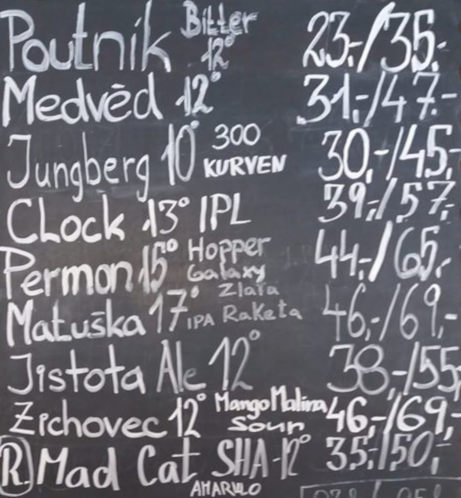 Poutník Bitter 12° 23,-/35,-
Medvěd 12° 31,-/47,-
Jungberg 10° 300 KURVEN 30,-/45,-
CLock 13° IPL 39,-/57,-
Permon 15° Hopper Galaxy 44,-/65,-
Matuška 17° Zlatá IPA Raketa 46,-/69,-
Jistota Ale 12° 38,-/55
Zichovec 12° Mango Malina Sour 46,-/69,-
R. Mad Cat SHA-12° AMARILO 35,-/50,-